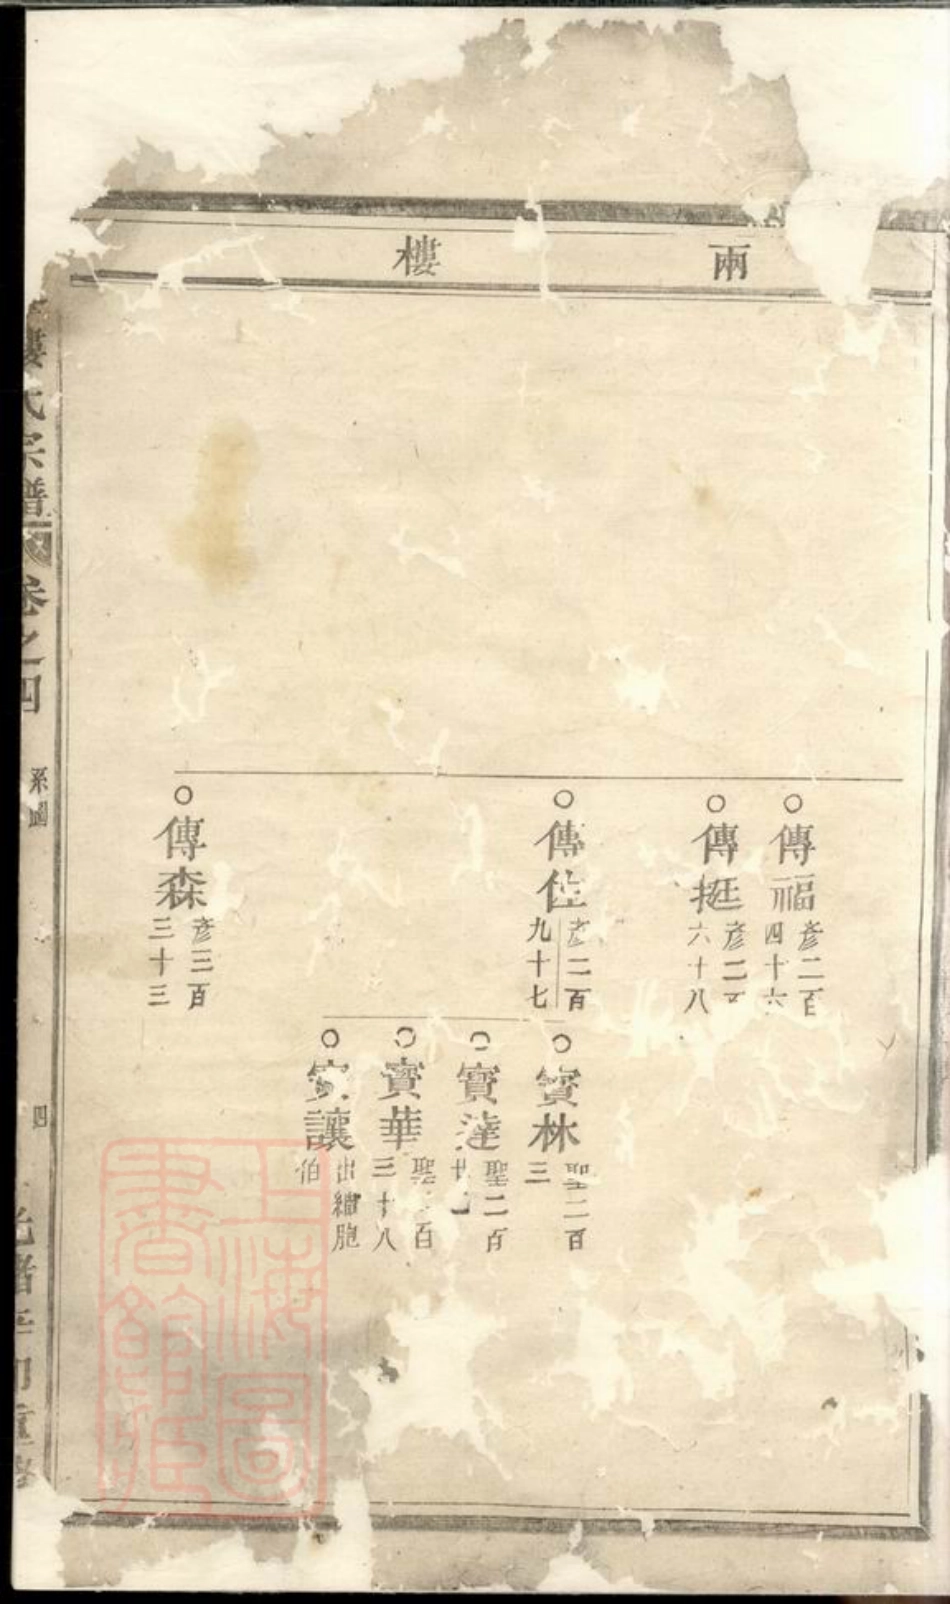 兩樓
傳福
彥二百
四十六
傳挺
彥二
六十八
傳佐
彥二百
九十七
傳森
彥三百
三十三
寶林
聖二百
三
寶達
聖二百
寶華
聖 百
三十八
寶讓
出繼胞
伯
樓氏宗譜
卷之四
系圖
四
光緒辛卯重修
上海圖書館藏